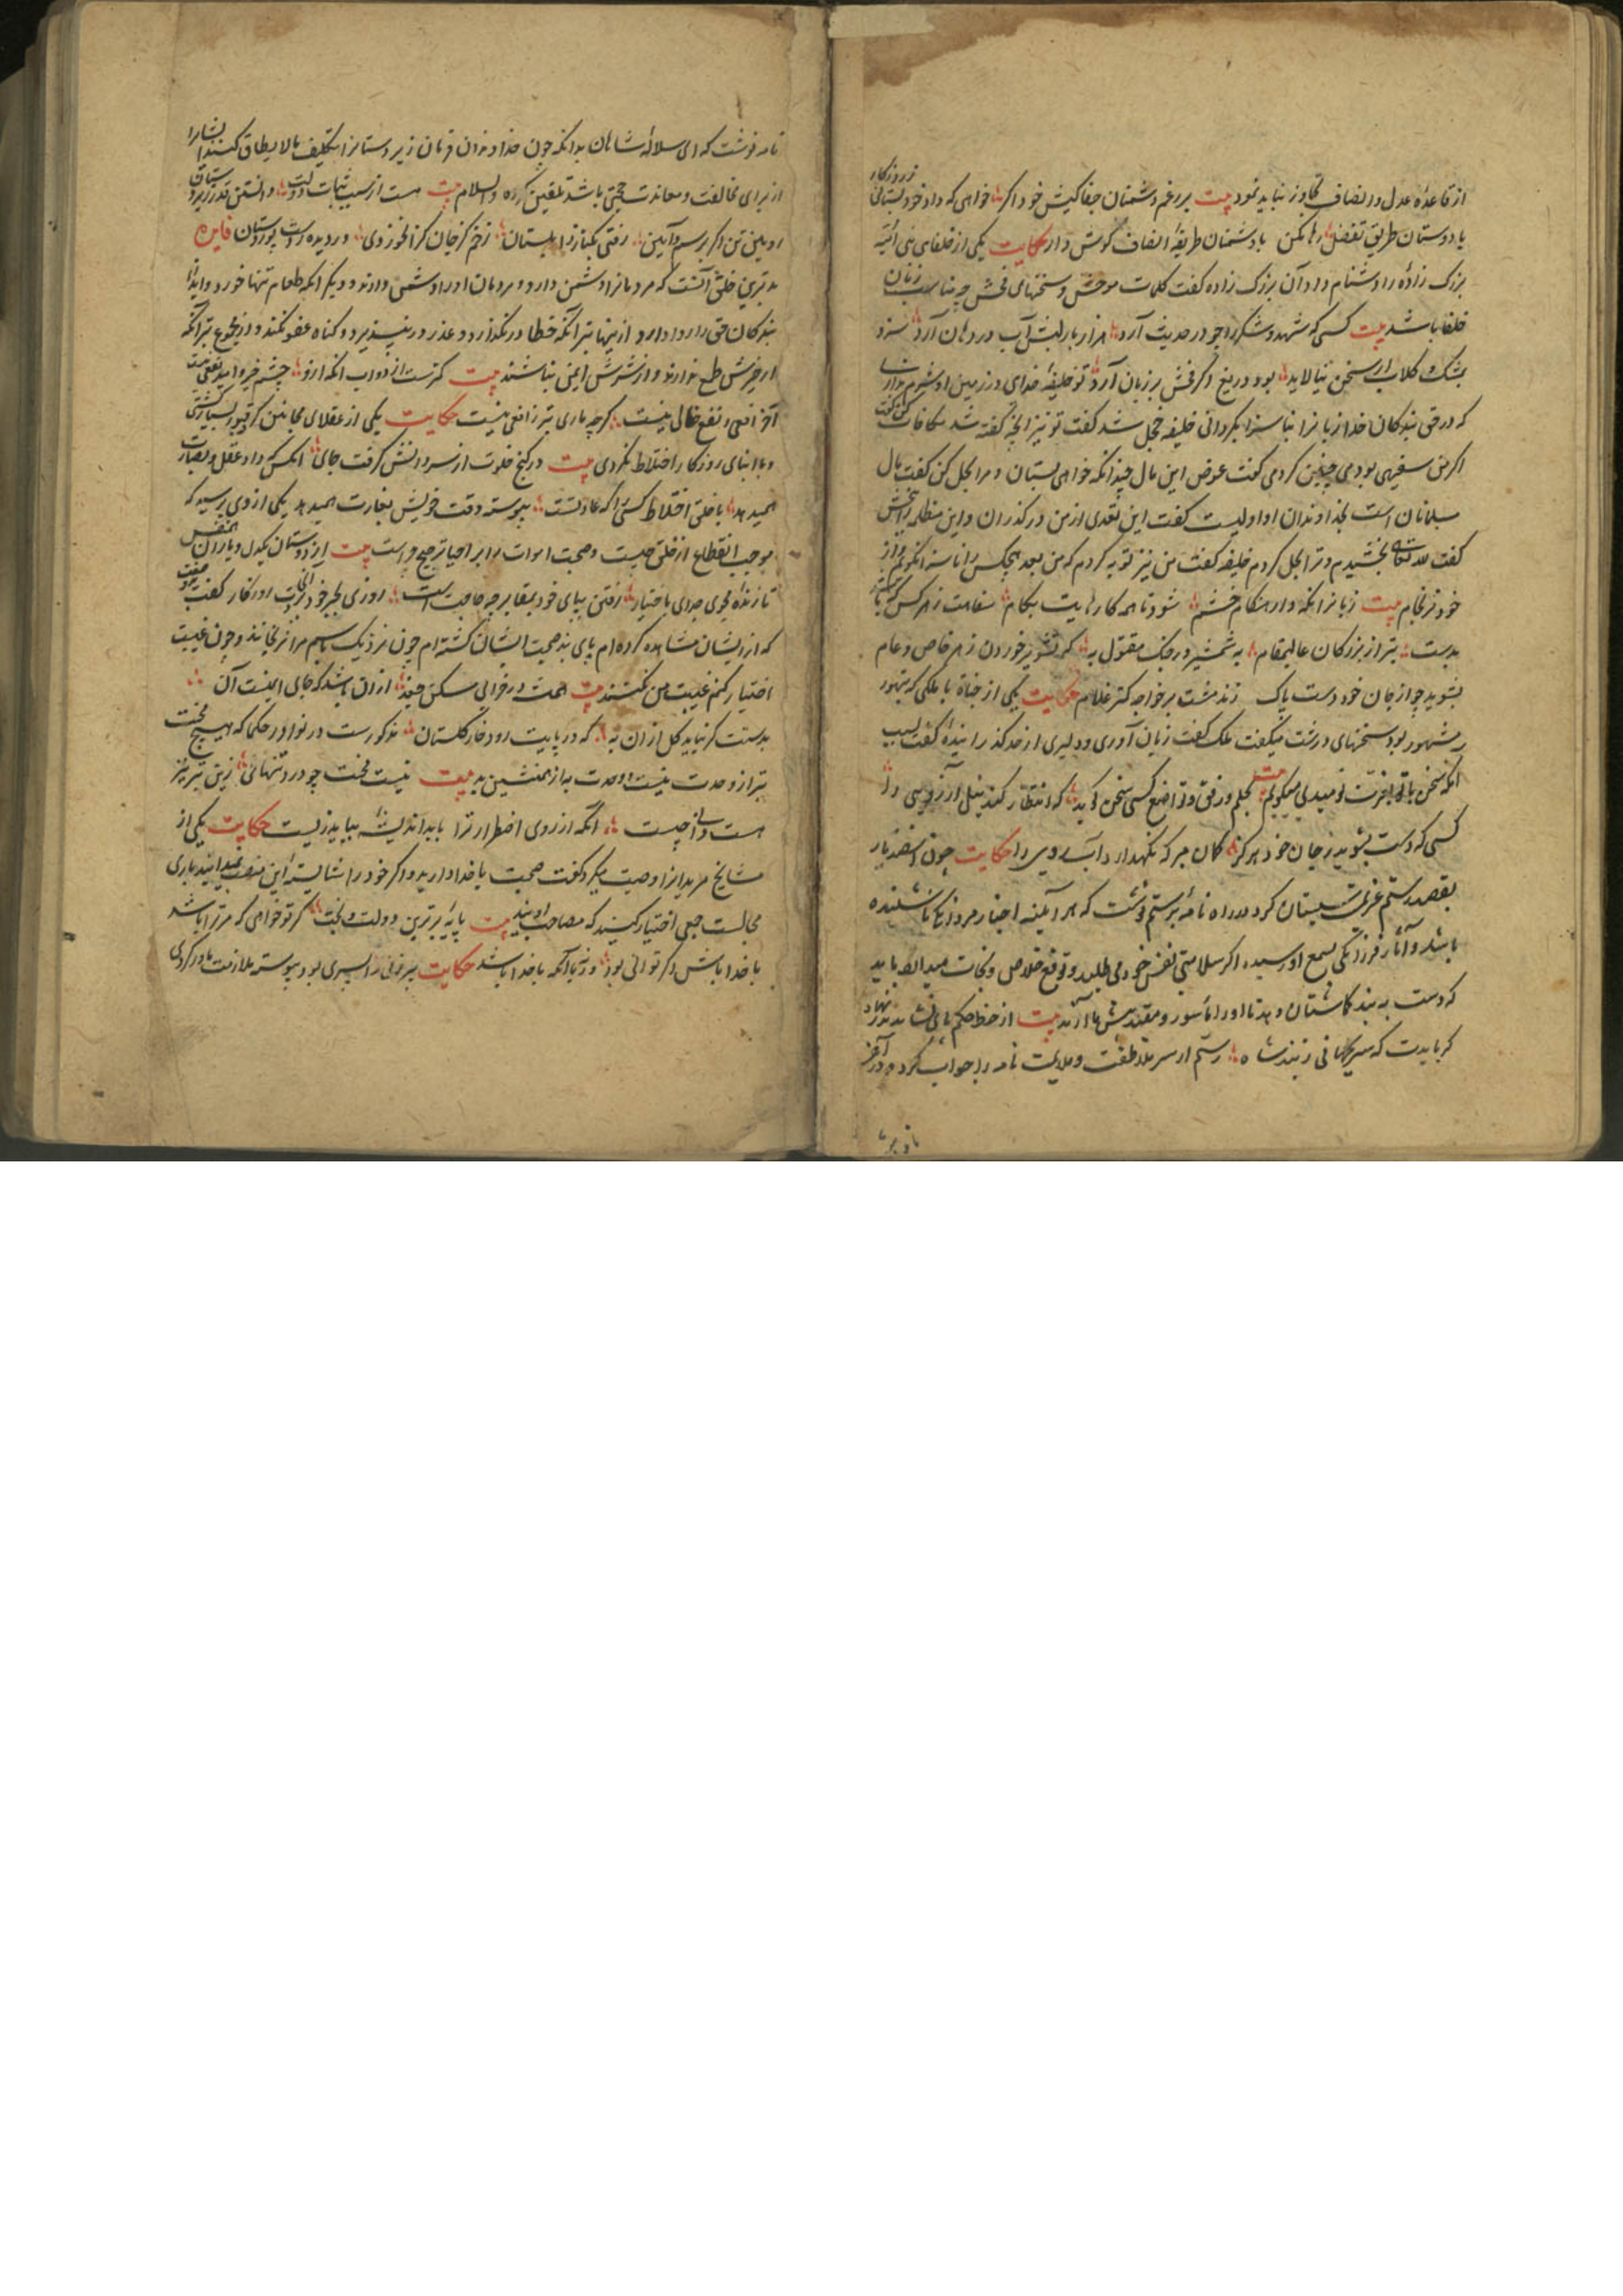 از قاعدهٔ عدل و انصاف تجاوز نباید نمود بیت بر رغم دشمنان جفاکیش خود اگر خواهی که داد خود بستانی ز روزگار
با دوستان طریق تفضل رها مکن با دشمنان طریقهٔ انصاف گوش دار حکایت یکی از خلفای بنی امیه
بزرگ زادهٔ را دشنام داد آن بزرگ زاده گفت کلمات موحش و سخنهای فحش چه مناسب زبان
خلفا باشد بیت کسی که شهد و شکر را چو در حدیث آرد هزار بار لبش آب در دهان آرد سزد
بمشک و گلاب ار سخن نیالاید بود دریغ اگر فحش بر زبان آرد تو خلیفهٔ خدای در زمین او شرم نداری
که در حق بندگان خدا زبانرا بناسزا بگردانی خلیفه خجل شد گفت تو نیز آنچه گفته شد مکافات کن گفت
اگر من سفیهی بودمی چنین کردمی گفت عوض این مال چندانکه خواهی بستان و مرا بحل کن گفت مال
مسلمانان است بخداوندان او اولیست گفت این تعدی از من در گذران و این مظلمه را ببخش
گفت لله تعالی بخشیدم و ترا بحل کردم خلیفه گفت من نیز توبه کردم که من بعد هیچکس را ناسزا نگویم و از
خود نرنجانم بیت زبانرا نگه دار هنگام خشم شود تا همه کارهایت بکام سفاهت ز هر کس که باشد
بدست بتر از بزرگان عالیمقام به شمشیر در جنگ مقتول به که تشویر خوردن ز هر خاص و عام
بشوید چو از جان خود دست پاک زند مشت بر خواجه کمتر غلام حکایت یکی از جناة با ملکی که بتهور
مشهور بود سخنهای درشت میگفت ملک گفت زبان آوری و دلیری از حد گذرانیدهٔ گفت سبب
آنکه سخن با تو از فرت نومیدی میگویم بیت بحلم و رفق و تواضع کسی سخن گوید که انتظار کند نیل آرزویی را
کسی که دست بشوید ز جان خود هرگز گمان مبر که نگهدارد آبروی را حکایت چون اسفندیار
بقصد رستم عزیمت سیستان کرد در راه نامهٔ برستم نوشت که هر آینه اخبار مردانگی ما شنیده
باشد و آثار فرزانگی بسمع او رسیده اگر سلامتی نفس خود می طلبد و توقع خلاص و نجات میدارد باید
که دست به بند گماشتگان دهد تا او را مأسور و مقید پیش ما آرند بیت از خط حکم ما نشاید
گر بایدت که سر نکشانی ز بند شاه رستم از سر ملاطفت و ملایمت نامه را جواب کرد و در آخر
نامه نوشت که ای سلالهٔ شاهان بدانکه چون خداوندان فرمان زیردستانرا تکلیف مالا یطاق کنند ایشانرا
از برای مخالفت و معاندت حجتی باشد تلقین کرده والسلام بیت هست از سبب ثبات دولت دانستن قدر زیردستان
رویین تن اگر برسم و آیین رفتی بکنار زابلستان زخم گز جان گزا نخوردی در دیده ز دست پور دستان فایده
بدترین خلق آنست که مردمانرا دشمن دارد و مردمان او را دشمن دارند و دیگر آنکه طعام تنها خورد و ایذا
بندگان حق را روا دارد از اینها بتر آنکه خطا در نگذارد و عذر در نپذیرد و گناه عفو نکند و از مجموع بتر آنکه
از خیرش طمع ندارند و از شرش ایمن نباشند بیت کمترست از دواب آنکه ازو چشم خیر و امید نفعی نیست
آخر افعی ز نفع خالی نیست گرچه ماری بتر ز افعی نیست حکایت یکی از عقلای مجانین گرد قبور بسیار گشتی
و با ابنای روزگار اختلاط نکردی بیت در کنج خلوت از سر دانش گرفت جای آنکس که داد عقل و بصارت
همی دهد با خلق اختلاط کسی را که عادتست پیوسته وقت خویش بغارت همی دهد یکی از وی پرسید که
موجب انقطاع از خلق چیست و صحبت اموات را بر احیا ترجیح چراست بیت از دوستان یکدل و یاران همنفس
تا زندهٔ مجوی جدی باختیار رفتن بپای خود بمقابر چه حاجت است روزی بجبر خود بردت روزگار گفت
که از ایشان مشاهده کرده ام پای بند صحبت ایشان گشته ام چون نزدیک رسم مرا نرنجانند و چون غیبت
اختیار کنم غیبت من نکنند بیت همت در خرابی مسکن چغد ازان باشد که جای ایمنست آن
بدستت گر نیاید گل از آن به که در پایت رود خار گلستان مذکورست در نوادر حکما که هیچ محنت
بتر از وحدت نیست و وحدت به از همنشین بد بیت نیست محنت چو درد تنهائی زین بتر نیز
هست دانی چیست آنکه از روی اضطرار ترا با بداندیشه بباید زیست حکایت یکی از
مشایخ مریدانرا وصیت میکرد گفت صحبت با خدا دارید و اگر خود را شایستهٔ این منصب نمیدانید باری
مجالست جمعی اختیار کنید که مصاحب اویند بیت پایهٔ برترین دولت و بخت گر تو خواهی که مر ترا باشد
با خدا باش و گر توانی بود ور نه با آنکه با خدا باشد حکایت پیرزنی را پسری بود پیوسته ملازمت مادر کردی